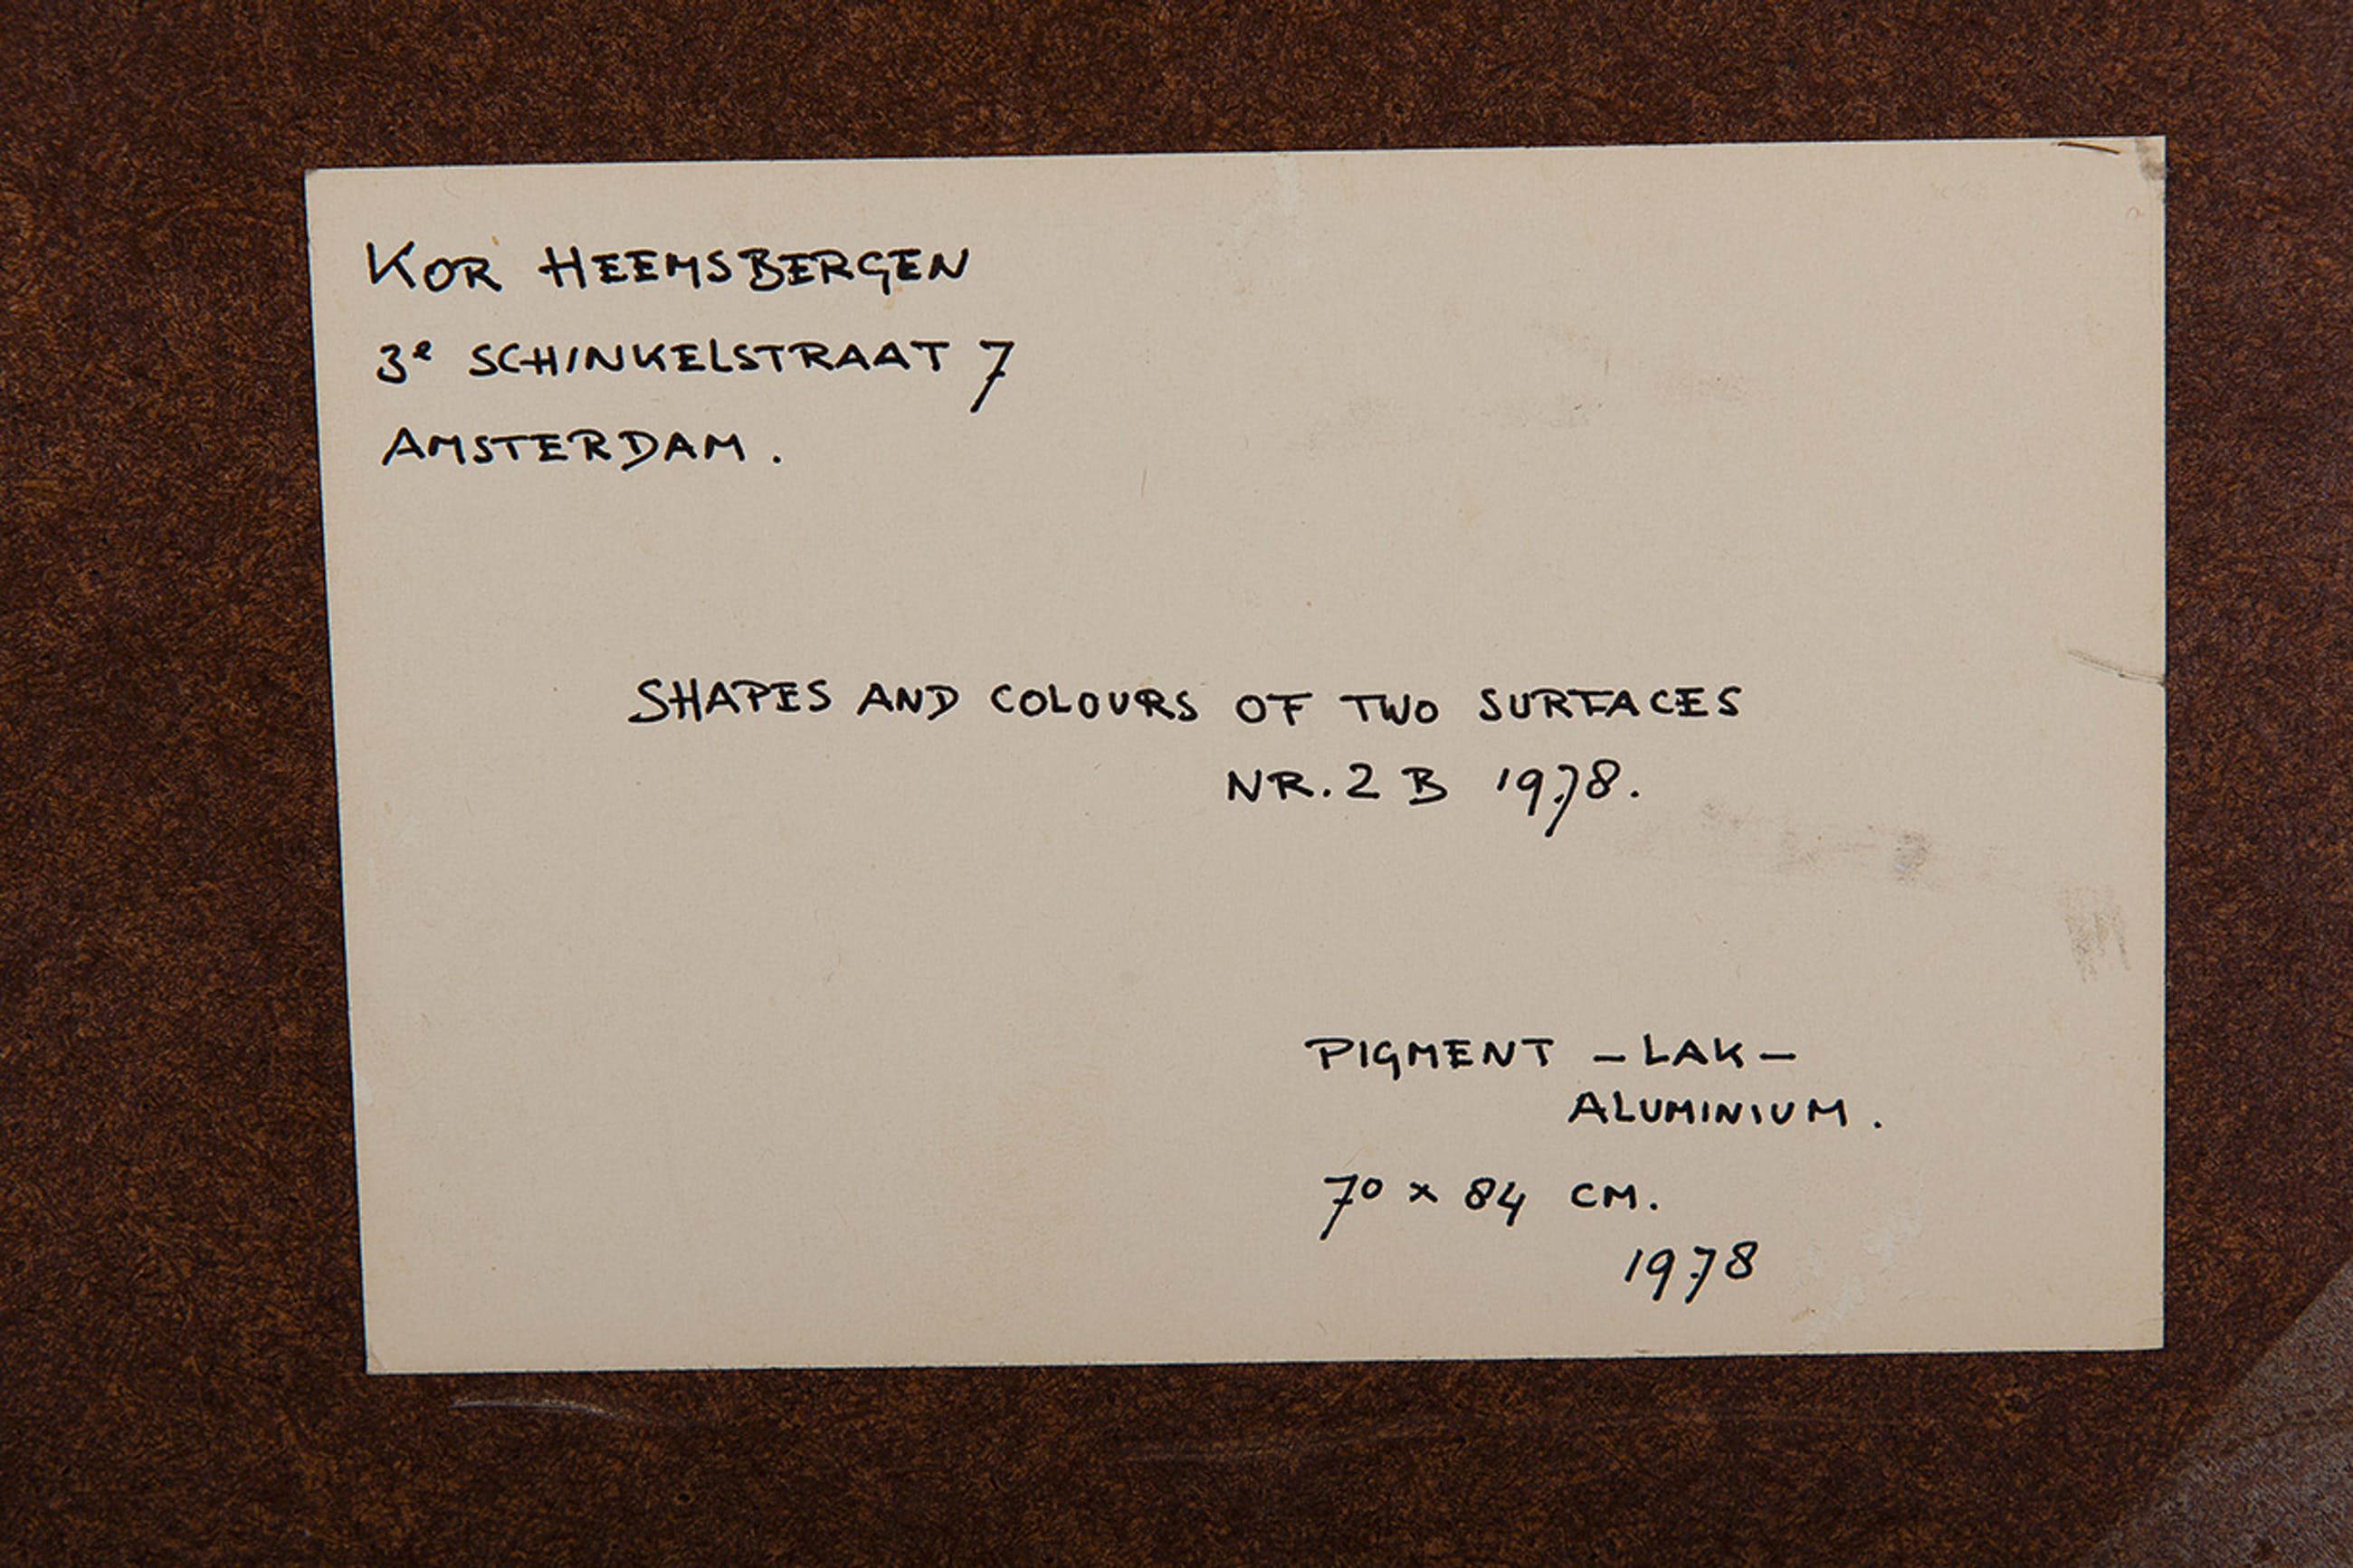 KOR HEEMSBERGEN
3e SCHINKELSTRAAT 7
AMSTERDAM.
SHAPES AND COLOURS OF TWO SURFACES
NR. 2 B 1978.
PIGMENT – LAK –
ALUMINIUM.
70 x 84 CM.
1978